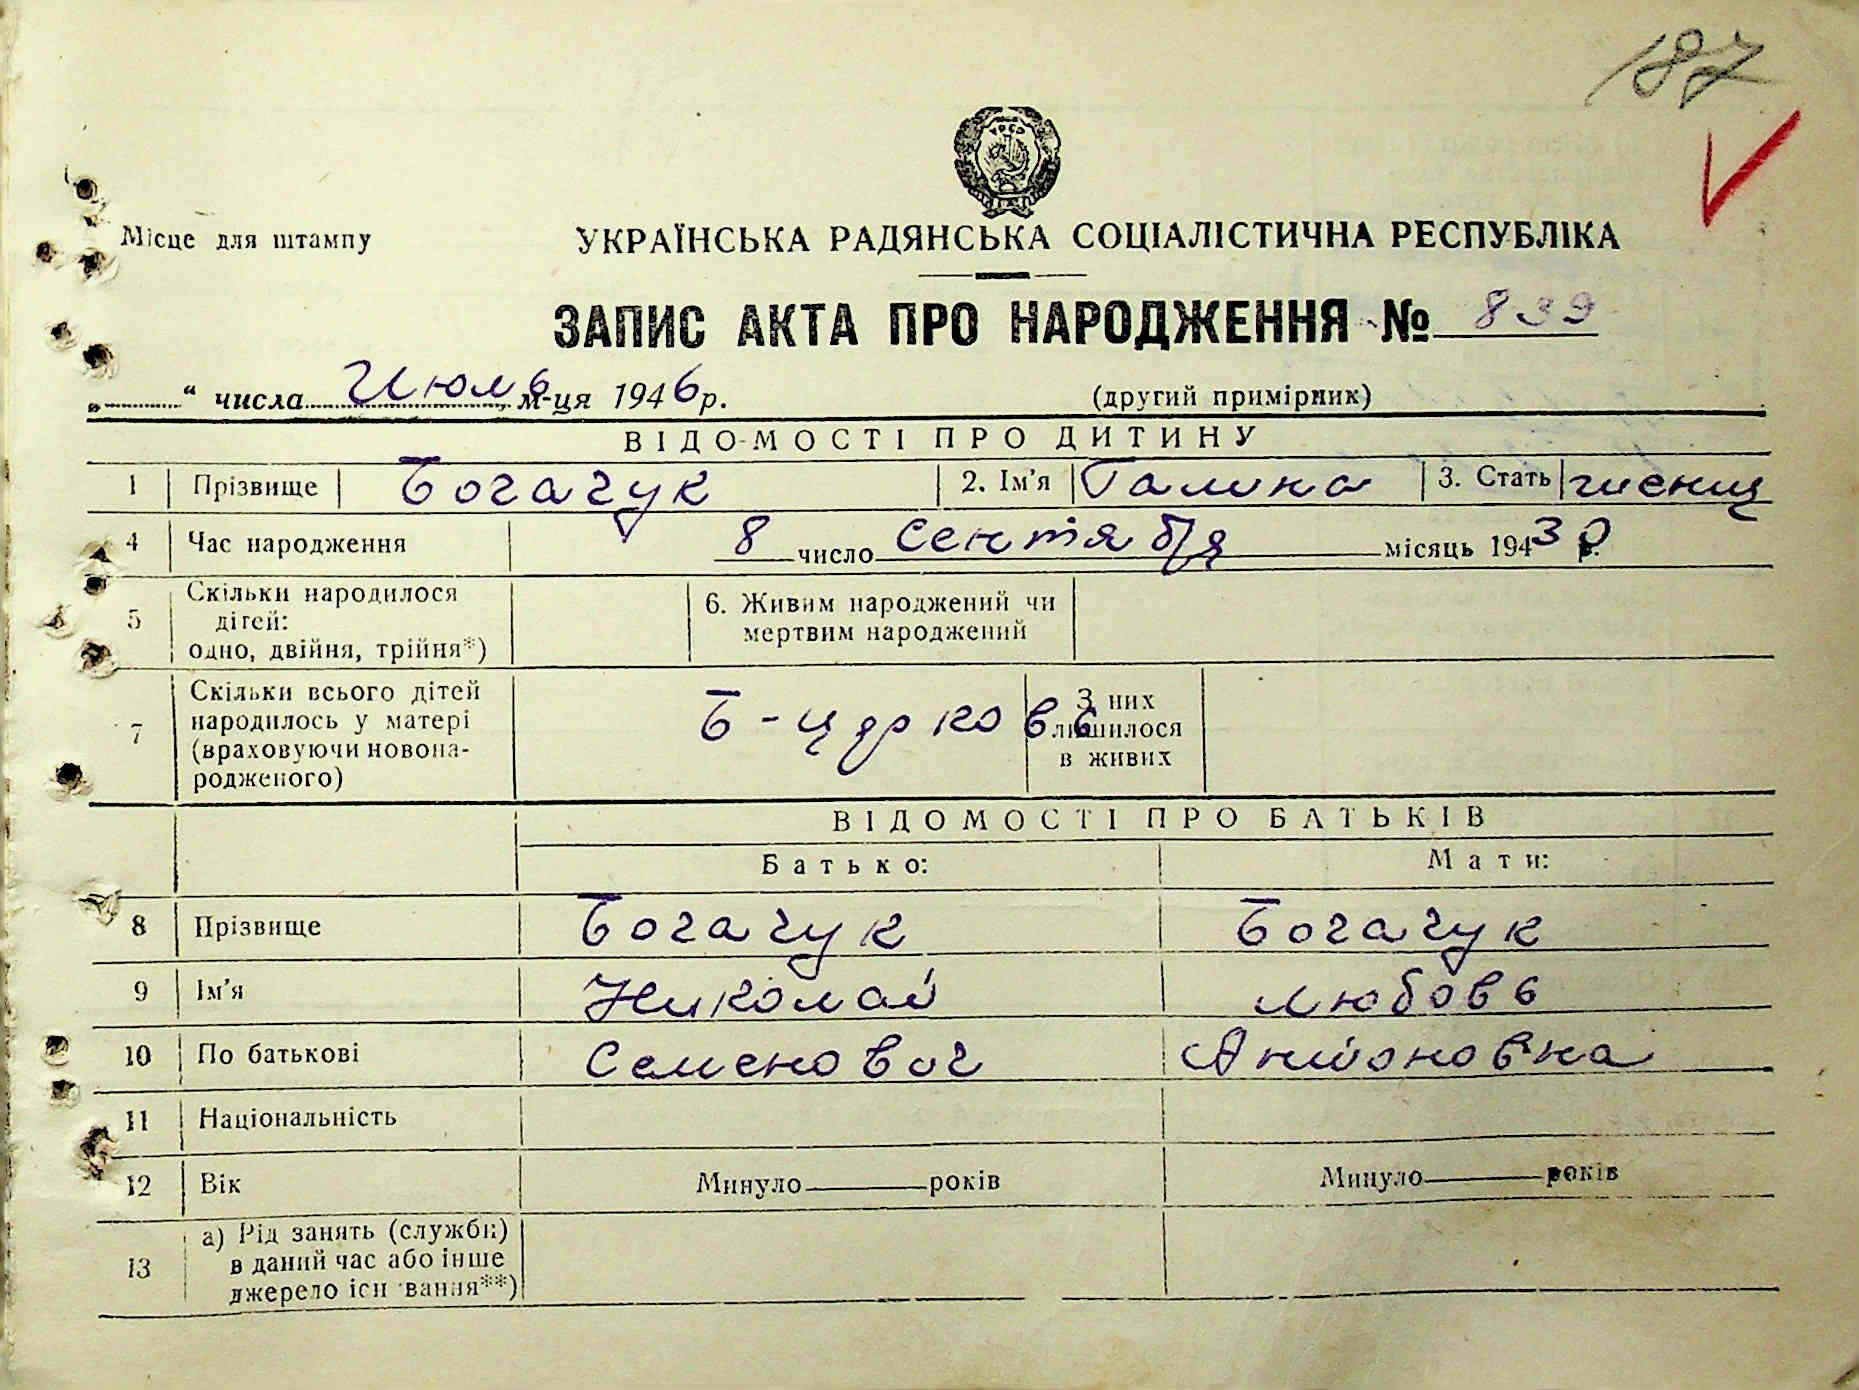 187
Місце для штампу
УКРАЇНСЬКА РАДЯНСЬКА СОЦІАЛІСТИЧНА РЕСПУБЛІКА
ЗАПИС АКТА ПРО НАРОДЖЕННЯ № 839
„ “ числа Июль м-ця 1946 р. (другий примірник)
ВІДОМОСТІ ПРО ДИТИНУ
1 Прізвище Богачук 2. Ім'я Галина 3. Стать женщ
4 Час народження 8 число сентября місяць 194 39
5 Скільки народилося дітей: одно, двійня, трійня*) 6. Живим народжений чи мертвим народжений
7 Скільки всього дітей народилось у матері (враховуючи новонародженого) Б-церковь З них лишилося в живих
ВІДОМОСТІ ПРО БАТЬКІВ
Батько: Мати:
8 Прізвище Богачук Богачук
9 Ім'я Николай Любовь
10 По батькові Семенович Антоновна
11 Національність
12 Вік Минуло років Минуло років
13 а) Рід занять (служби) в даний час або інше джерело існування**)